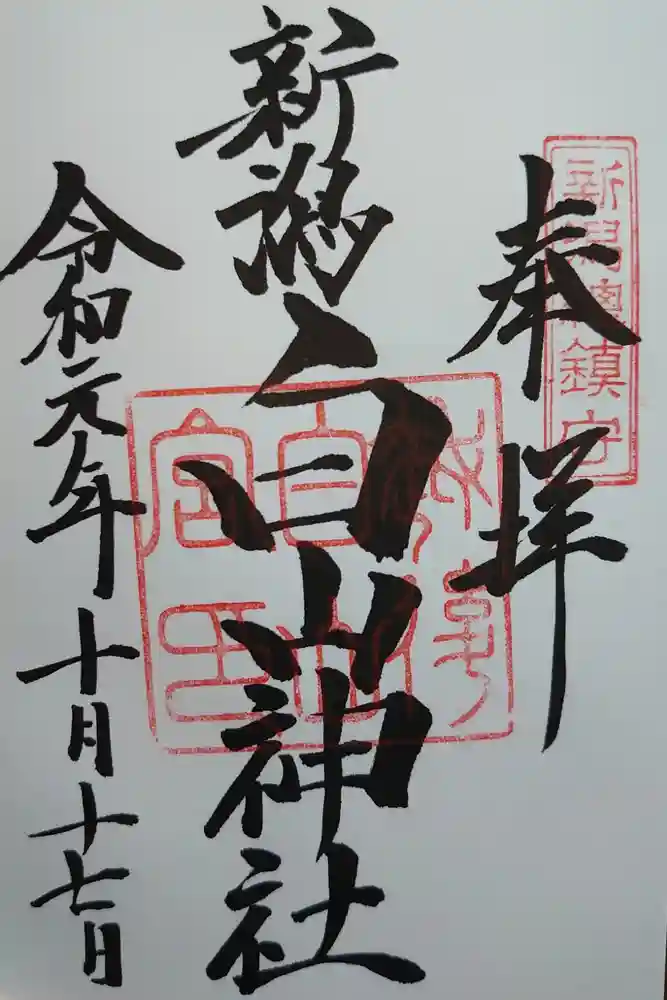 奉拝
新潟總鎮守
新潟白山神社
白山
宮印
令和元年十月十七日